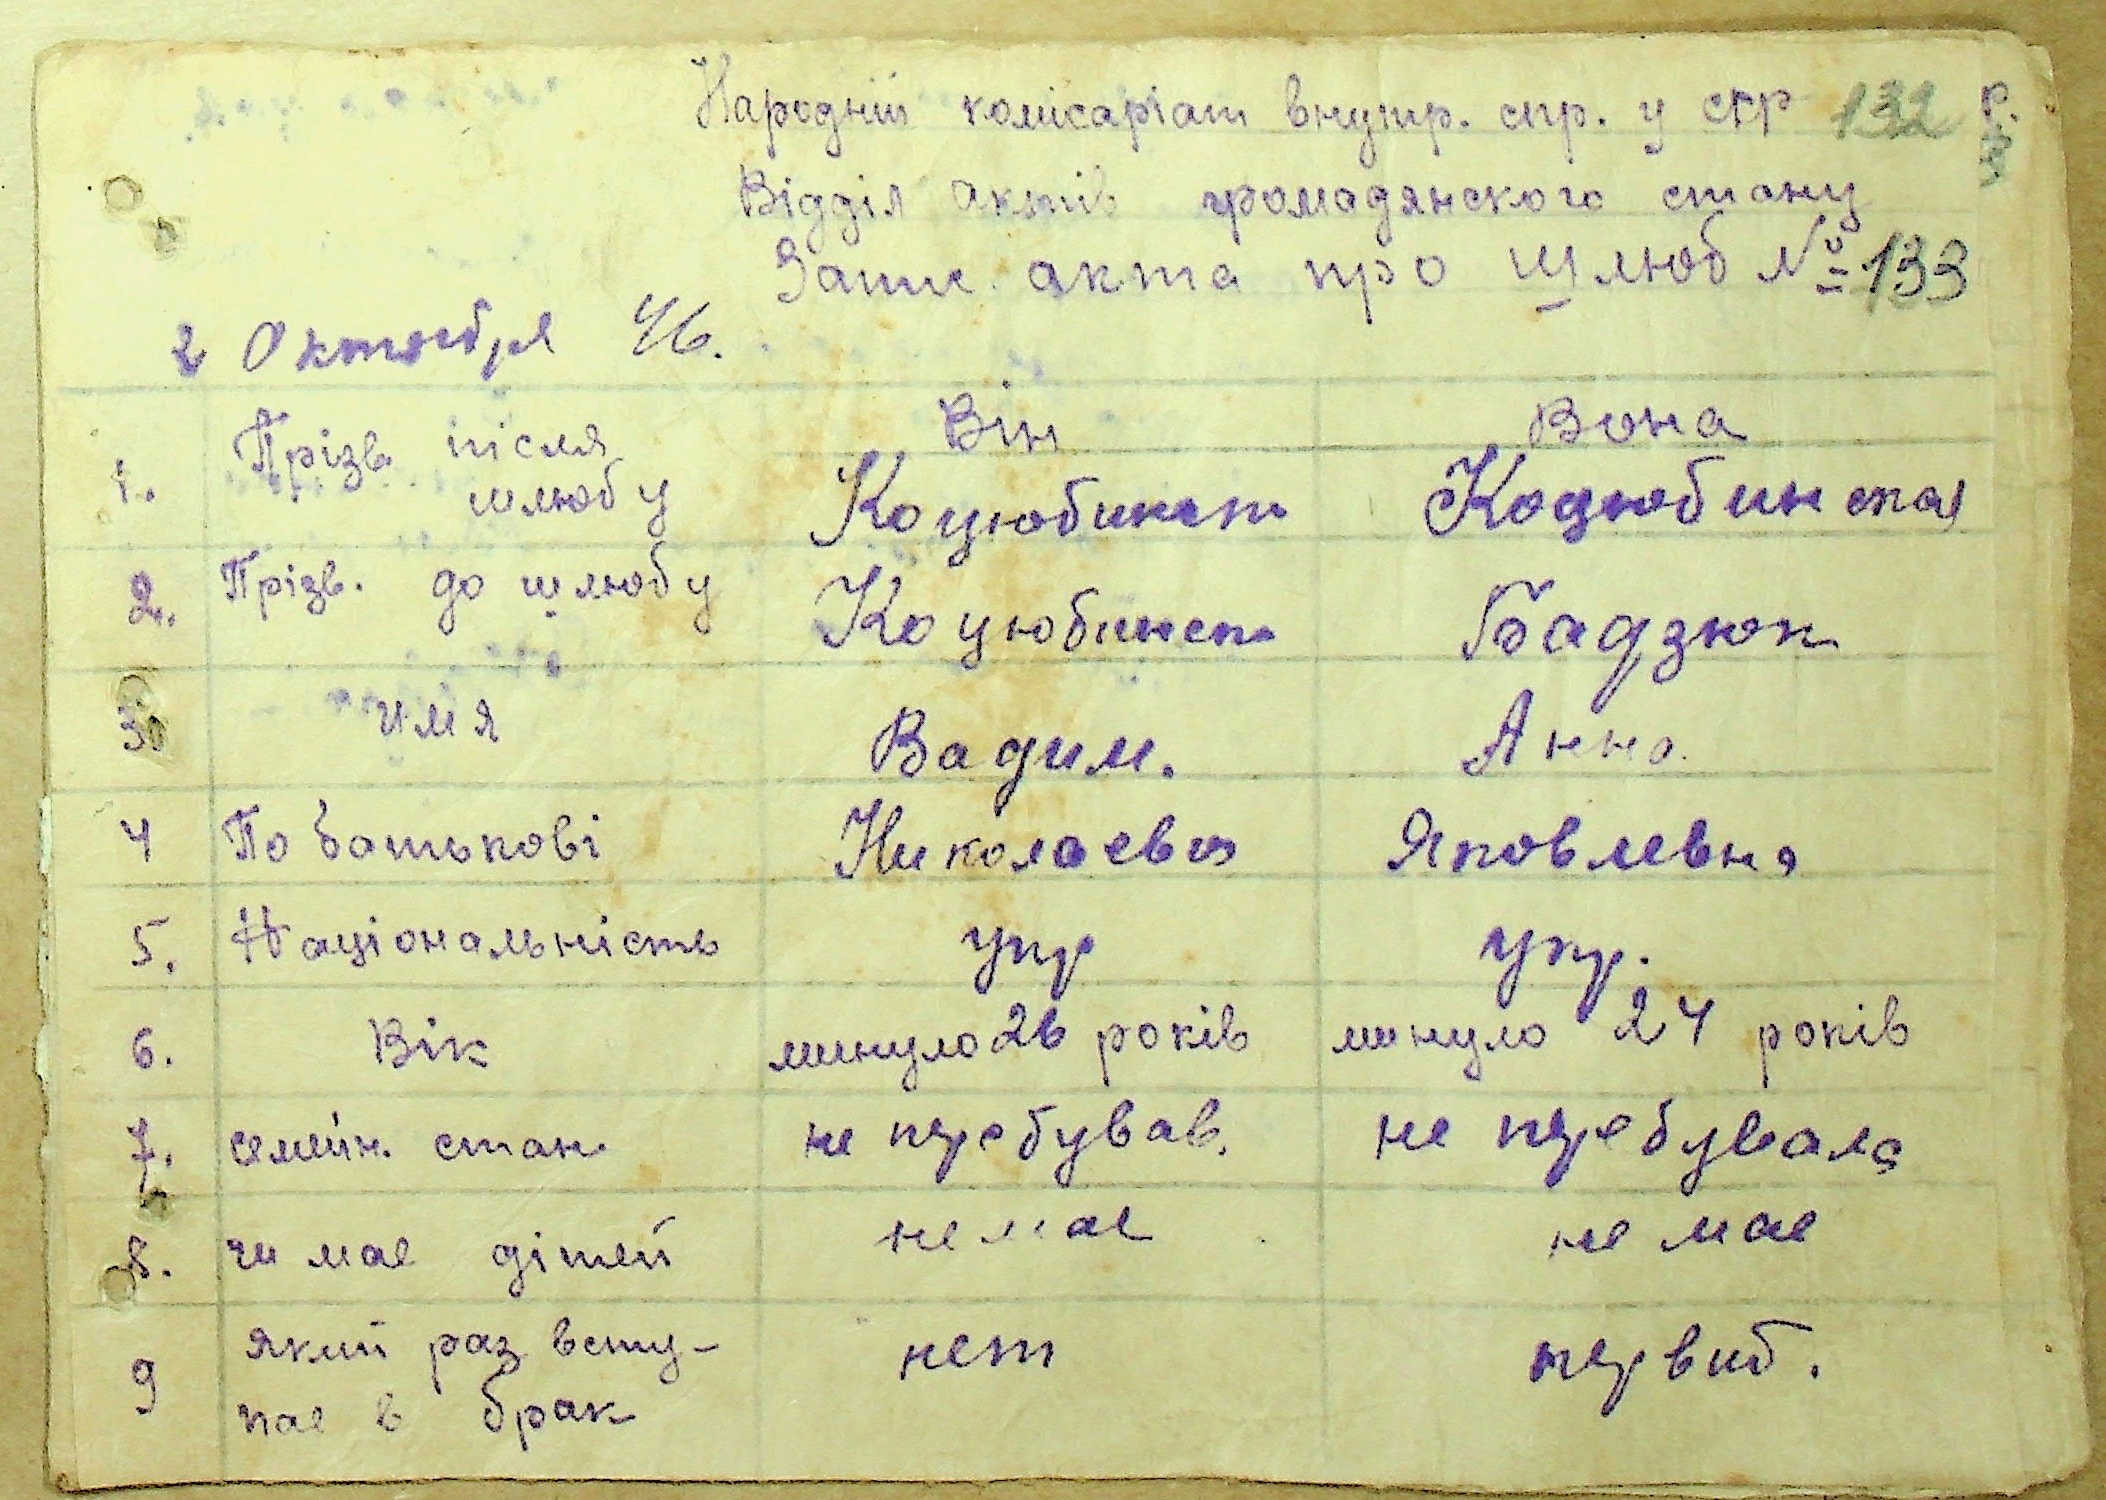 Народній комісаріат внутр. спр. У СРР 132
Відділ актів громадянского стану
Запис акта про шлюб № 133
2 Октября 46.
Він Вона
1. Прізв. після шлюбу Коцюбинск Коцюбинская
2. Прізв. до шлюбу Коцюбинск Бадзюк
3. имя Вадим. Анна.
4 По батькові Николаевич Яковлевна
5. Національність укр укр.
6. Вік минуло 26 років минуло 24 років
7. семейн. стан. не пребував. не пребувала
8. чи мае дітей не мае не мае
9 який раз всту-
пае в брак нет первий.